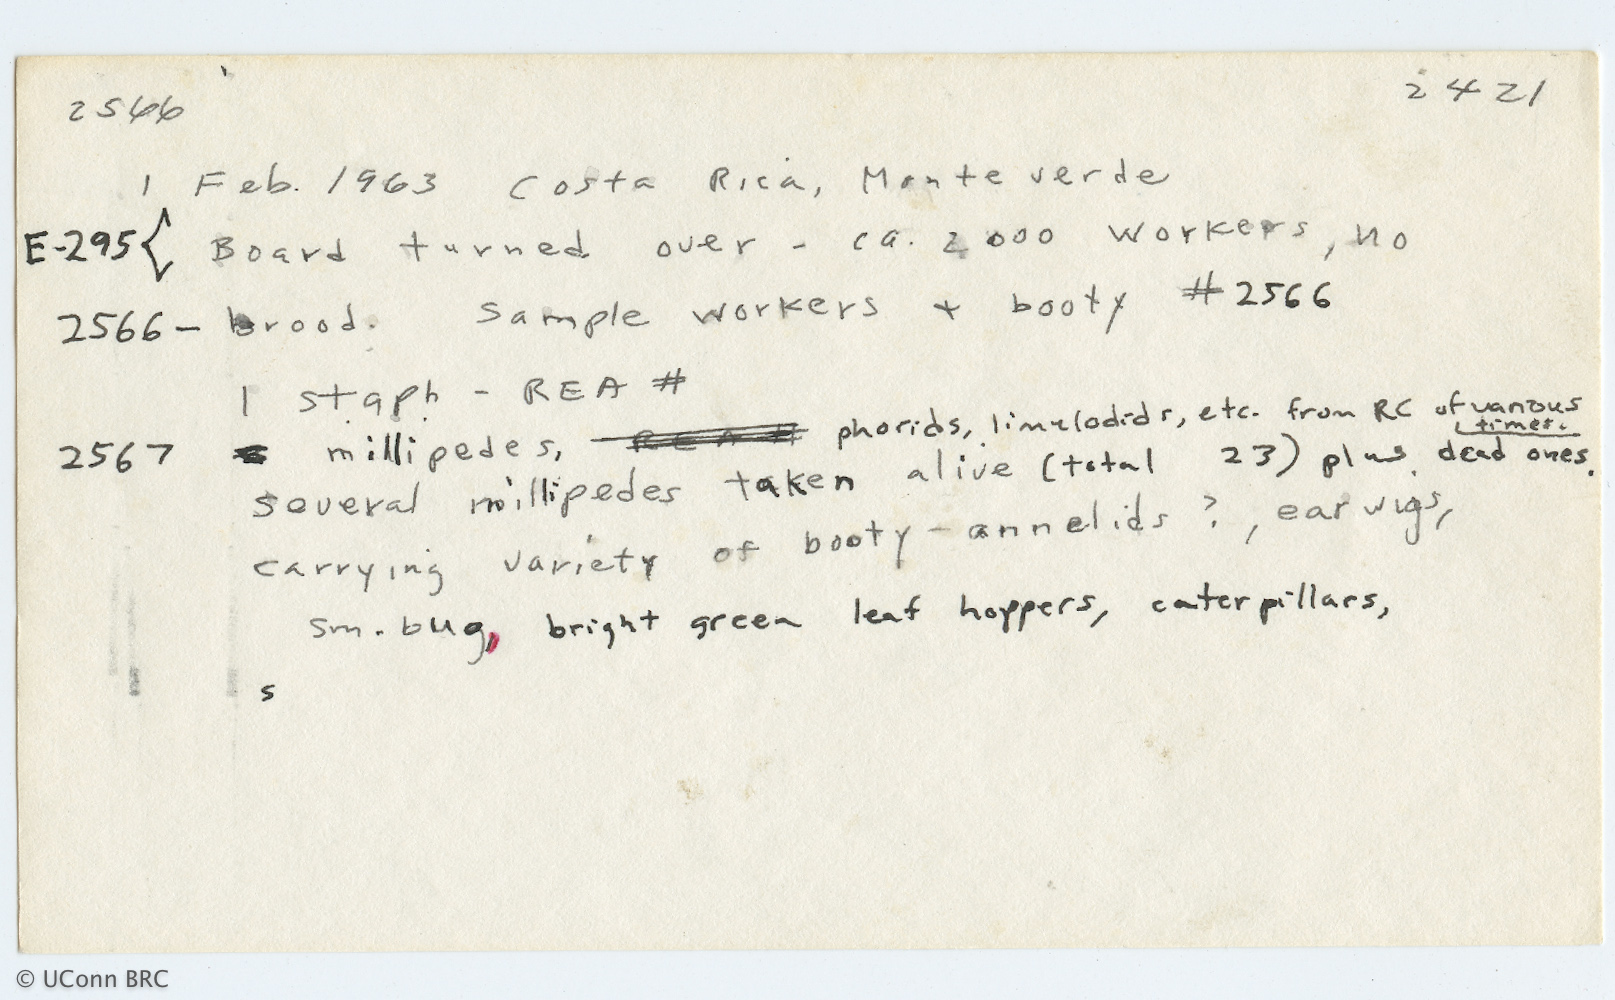 2566 2421
1 Feb. 1963 Costa Rica, Monteverde
E-295 { Board turned over - ca. 2000 workers, no
2566 - brood. Sample workers + booty # 2566
1 staph - REA #
2567 millipedes, REA # phorids, limulodids, etc. from RC of various times.
several millipedes taken alive (total 23) plus dead ones.
carrying variety of booty - annelids ?, earwigs,
sm. bug, bright green leaf hoppers, caterpillars,
s
© UConn BRC